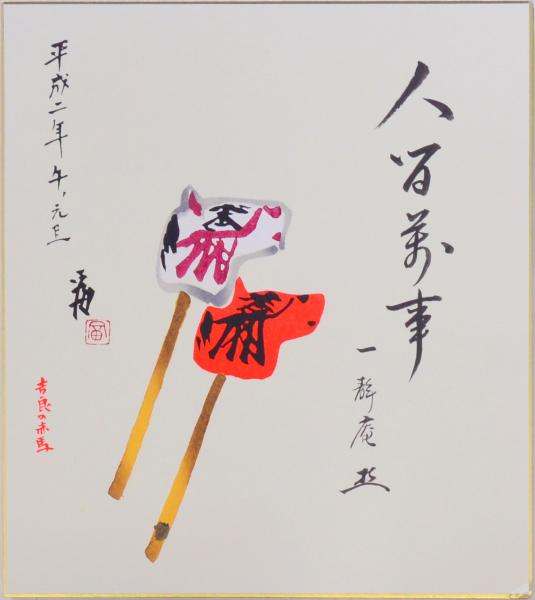 人百萬事
一静庵
平成二年 午、元旦
吉良の赤馬